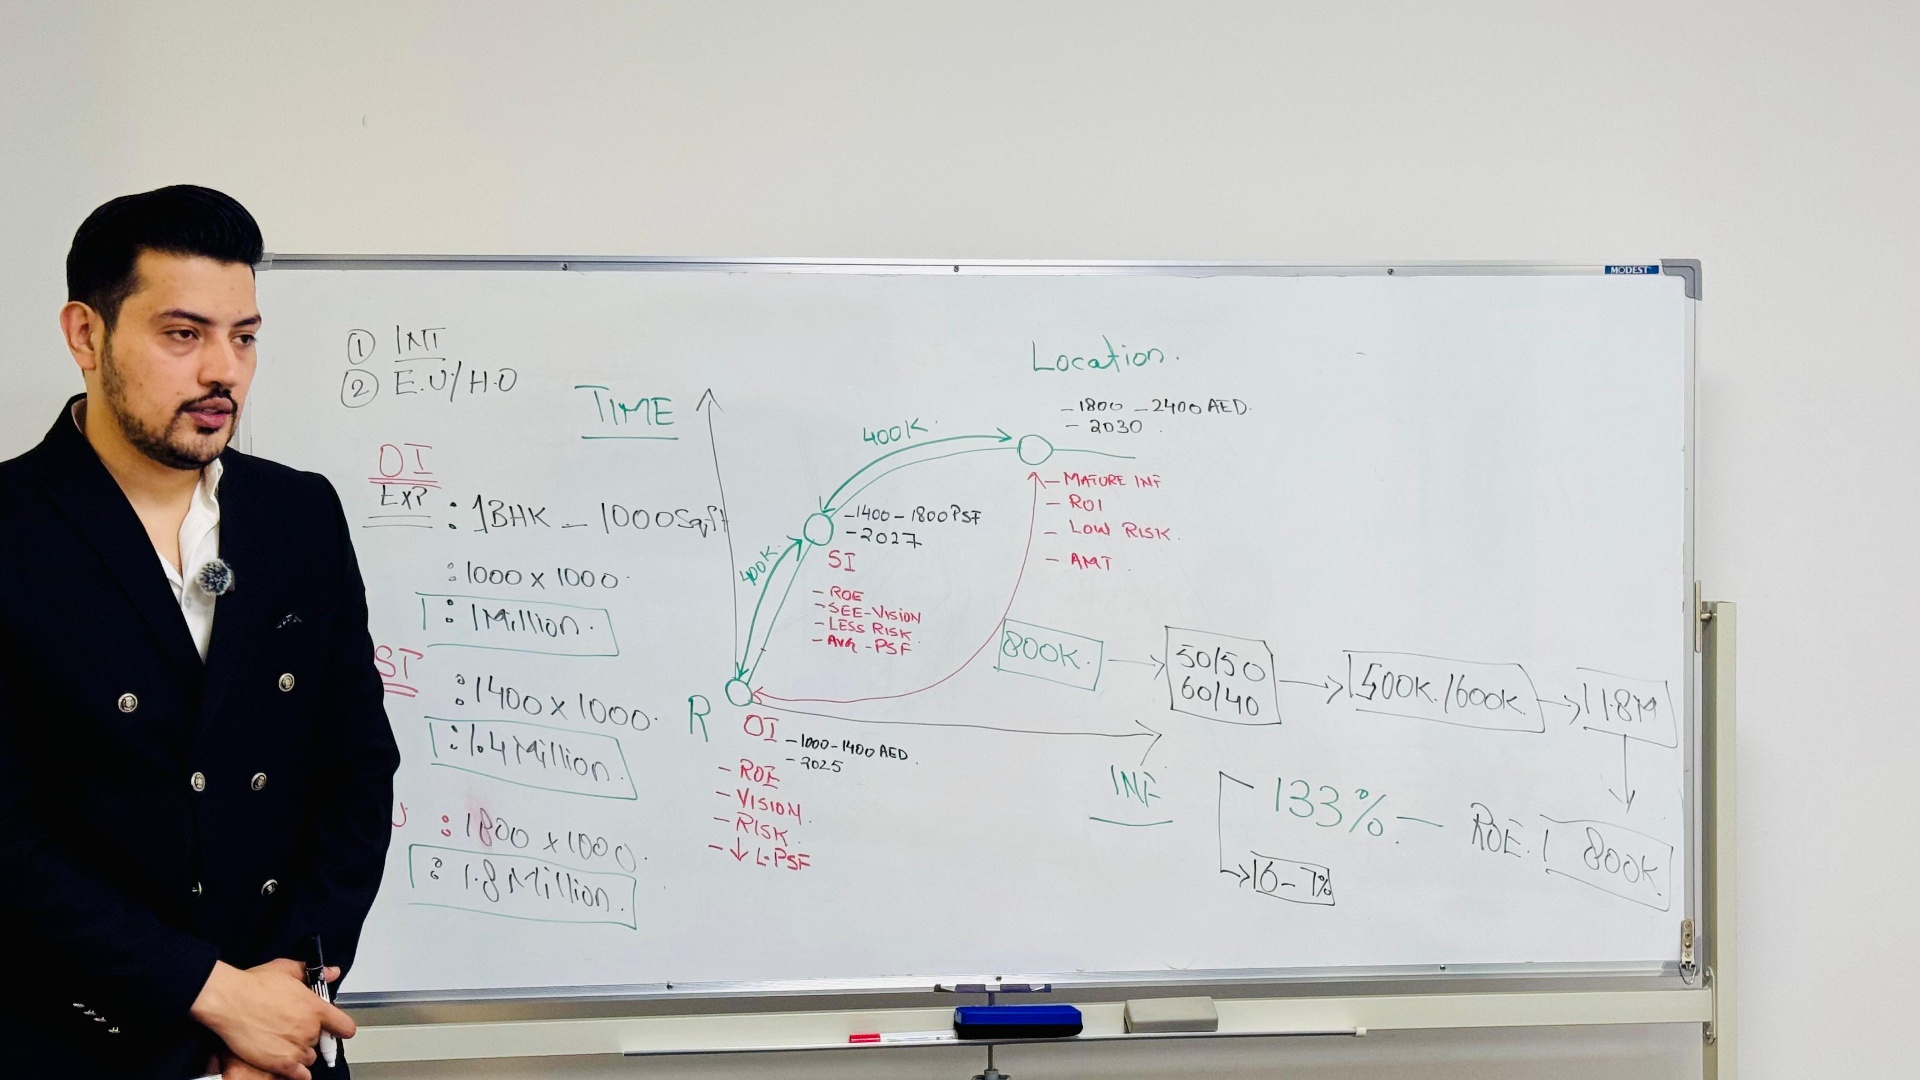 MODEST
① INT
② E.U/H.O
OI
EXP : 1BHK - 1000 Sq.ft
: 1000 x 1000.
: 1 Million.
: 1400 x 1000.
: 1.4 Million.
: 1800 x 1000.
: 1.8 Million.
TIME
Location.
- 1800 - 2400 AED.
- 2030
400K.
- MATURE INF
- ROI
- LOW RISK.
- AMT.
- 1400 - 1800 PSF
- 2027
SI
- ROE
- SEE-VISION
- LESS RISK
- AVG - PSF
400K.
R
OI
- 1000 - 1400 AED.
- 2025
- ROE
- VISION.
- RISK.
- ↓ L.PSF
INF
800K.
50/50
60/40
500K./600K.
1.8M
800K.
ROE.
133%.
6-7%